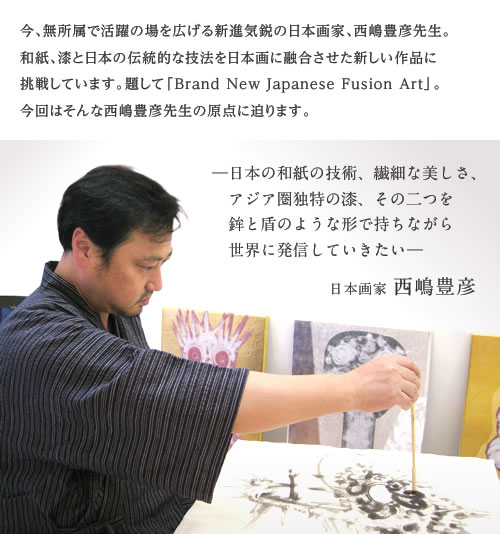 今、無所属で活躍の場を広げる新進気鋭の日本画家、西嶋豊彦先生。
和紙、漆と日本の伝統的な技法を日本画に融合させた新しい作品に
挑戦しています。題して「Brand New Japanese Fusion Art」。
今回はそんな西嶋豊彦先生の原点に迫ります。
―日本の和紙の技術、繊細な美しさ、
アジア圏独特の漆、その二つを
鉾と盾のような形で持ちながら
世界に発信していきたい―
日本画家 西嶋豊彦